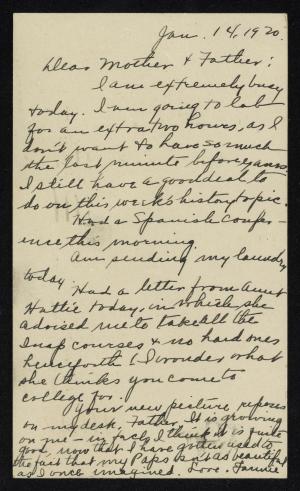 Jan. 14, 1920.
Dear Mother & Father:
I am extremely busy
today. I am going to lab
for an extra two hours, as I
don't want to have so much
the last minute before exams.
I still have a good deal to
do on this week's history topic.
Had a Spanish confer-
ence this morning.
Am sending my laundry
today.
Had a letter from Aunt
Hattie today, in which she
advised me to take all the
snap courses & no hard ones
henceforth! I wonder what
she thinks you come to
college for.
Your new picture reposes
on my desk, Father. It is growing
on me - in fact, I think it is quite
good, now that I have gotten used to
the fact that my Papa is not as beautiful
as I once imagined. Love. Fannie